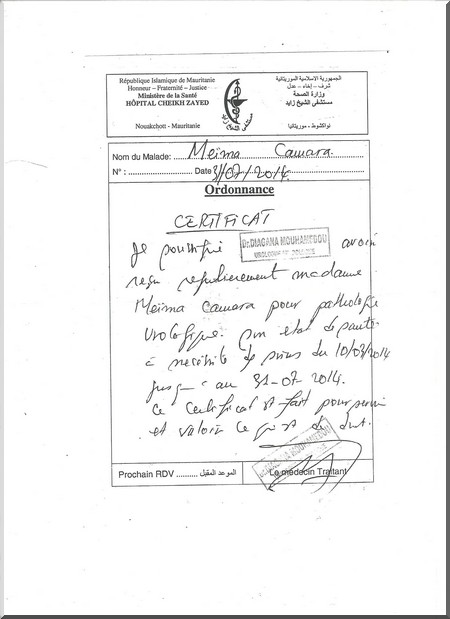 République Islamique de Mauritanie
Honneur – Fraternité – Justice
Ministère de la Santé
HÔPITAL CHEIKH ZAYED
Nouakchott - Mauritanie
الجمهورية الإسلامية الموريتانية
شرف – إخاء – عدل
وزارة الصحة
مستشفى الشيخ زايد
نواكشوط - موريتانيا
Nom du Malade: Meïma Camara
N° : Date 31/07/2014
Ordonnance
CERTIFICAT
Je Dr.DIAGANA MOUHAMEDOU avoir
reçu regulierement madame
Meïma Camara pour pathologie
Urologique. Son etat de santé
à necessité de soins du 10/03/2014
jusqu'au 31-07-2014.
Ce certificat est fait pour servir
et valoir ce que de droit.
Dr.DIAGANA MOUHAMEDOU
Prochain RDV .......... الموعد المقبل
Le médecin Traitant